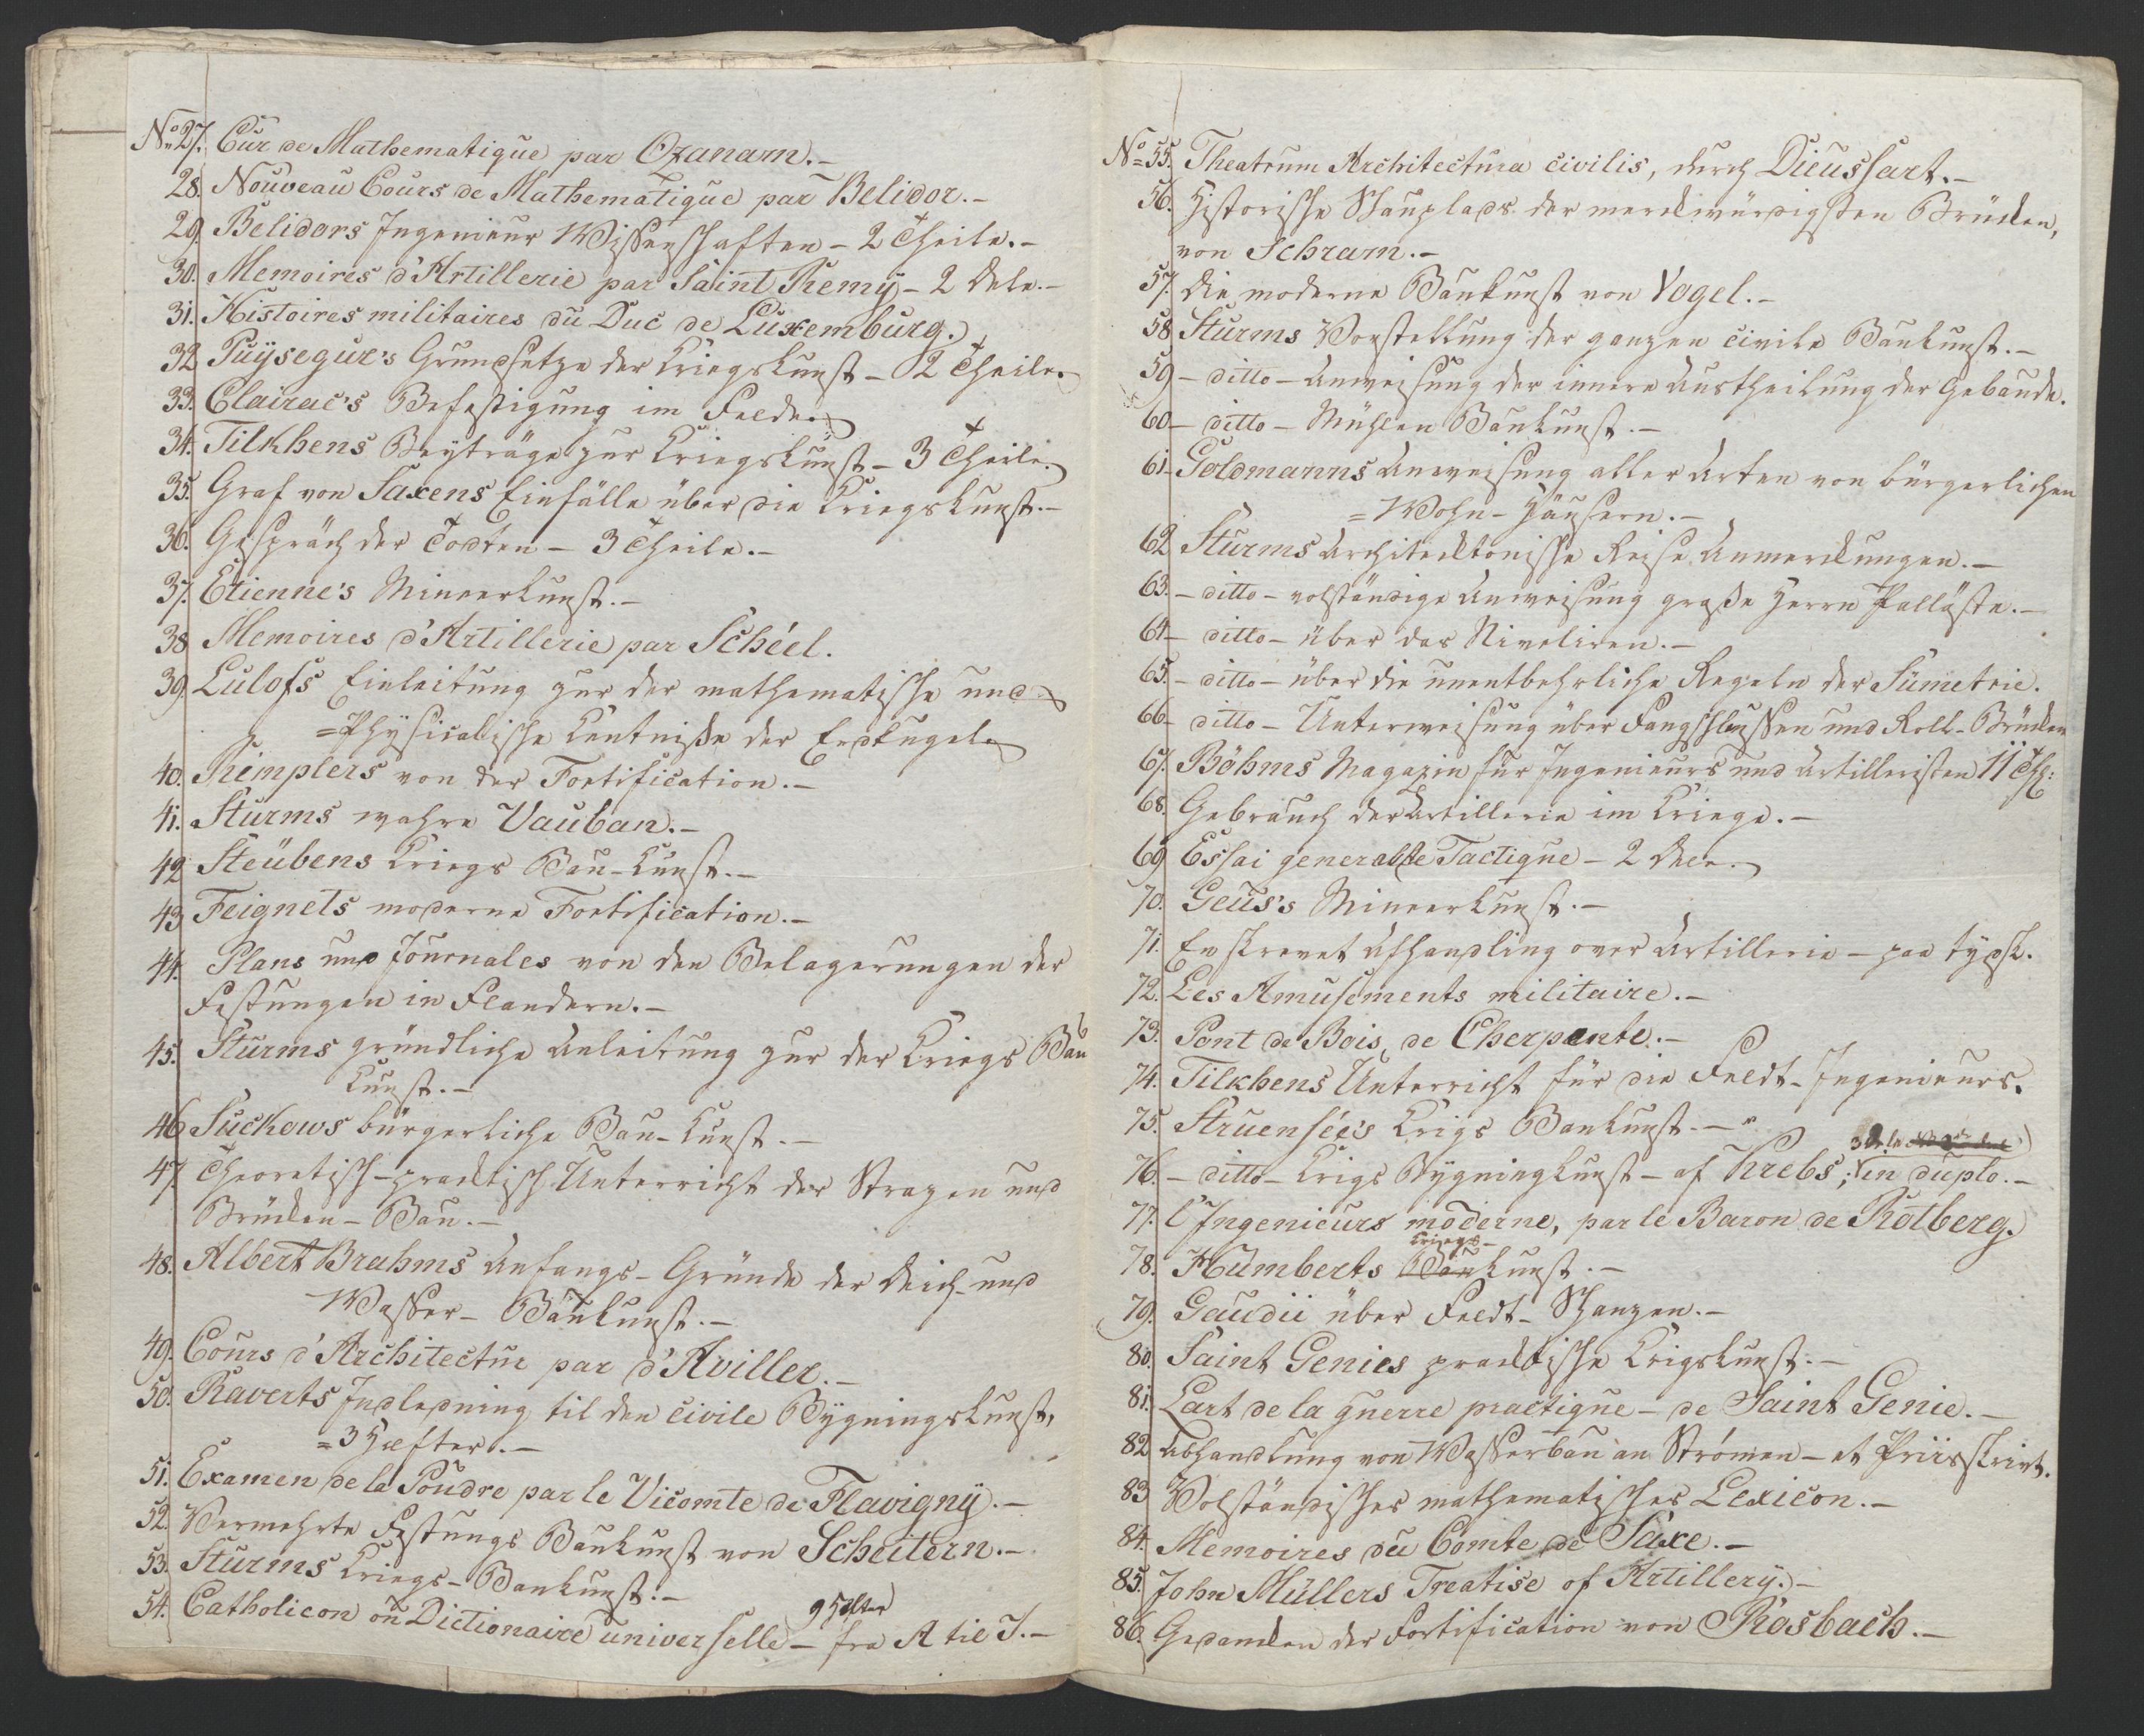 No 27. Cur de Mathematique par Ozanam.-
28. Nouveau Cours de Mathematique par Belidor.-
29. Belidors Ingenieur Wissenschaften - 2 Theile.-
30. Memoires d'Artillerie par Saint Remy - 2 Dele.-
31. Histoires militaires du Duc de Luxemburg.
32. Puysegur's Grundsetze der Kriegskunst - 2 Theile.
33. Clairac's Befestigung im Felde.
34. Tilkhens Beyträge zur Kriegskunst - 3 Theile.
35. Graf von Saxens Einfälle über die Kriegskunst.-
36. Gespräch der Todten - 3 Theile.-
37. Etienne's Mineerkunst.-
38 Memoires d'Artillerie par Schéel.
39. Lulofs Einleitung zur der mathematische und
=Physicalische Kentniße der Erdkugel.
40. Rimplers von der Fortification.-
41. Sturms wahre Vauban.-
42 Steübens Kriegs Bau-Kunst.-
43 Feignets moderne Fortification.-
44. Plans und Journales von den Belagerungen der
Festungen in Flandern.-
45. Sturms gründliche Anleitung zur der Kriegs Bau
Kunst.-
46 Suckows bürgerliche Bau-Kunst.-
47 Theoretisch-practisch Unterricht der Strazen und
Brücken-Bau.-
48. Albert Brahms Anfangs-Gründe der Deich- und
Wasser-Baukunst.-
49. Cours d'Architectur par d'Aviller.-
50. Raverts Indledning til den civile Bygningskunst,
=3 Hefter.-
51. Examen de la Poudre par le Vicomte de Flavigny.-
52. Vermehrte Festungs Baukunst von Scheitern.-
53. Sturms Kriegs-Baukunst.-
54. Catholicon ou Dictionaire universelle - 9 Hefter fra A til I.-
No 55. Theatrum Architectura civilis, durch Dieussart.-
56. Historische Schauplads der merckwürdigsten Brücken,
von Schram.-
57. die moderne Baukunst von Vogel.-
58 Sturms Vorstellung der ganzen civile Baukunst.-
59 - ditto - Anweisung der innere Austheilung der Gebaude.
60 - ditto - Mühlen Baukunst.-
61- Goldmanns Anweisung aller Arten von bürgerlichen
=Wohn-Häusern.-
62 Sturms Architecktonische Reise Anmerckungen.-
63. - ditto - volständige Anweisung große Herrn Palläste.-
64 - ditto - über das Niveliren.-
65. - ditto - über die unentbehrliche Regeln der Sümetrie.
66 - ditto - Unterweisung über Fangschleussen und Roll-Brücken
67. Böhms Magazin für Ingenieurs und Artilleristen 11 Th:
68. Gebrauch der Artillerie im Kriege.-
69 Essai general de Tactique - 2 Dele.
70. Geüs's Mineerkunst.-
71. En skrevet Afhandling over Artillerie - paa tydsk.
72. Les Amusements militaire.-
73. Pont de Bois, de Cherpente.-
74. Tilkhens Unterricht für die Feldt-Ingenieurs.
75. Struensée's Krigs Baukunst.-
76. - ditto - Krigs Bygningkunst - af Krebs, 3 Dele in duplo.-
77. l'Ingenieurs moderne, par le Baron de Rotberg.
78. Humberts Kriegs-Baukunst.-
79. Gaudii über Feldt-Schanzen.-
80. Saint Genies practische Krigskunst.-
81. L'art de la guerre practique - de Saint Genie.-
82 Abhandlung von Wasserbau an Strömen - et Priisskrivt.
83 Volständisches mathematisches Lexicon.-
84. Memoires du Comte de Saxe.-
85. John Müllers Treatise of Artillery.-
86. Gedancken der Fortification von Rosbach.-